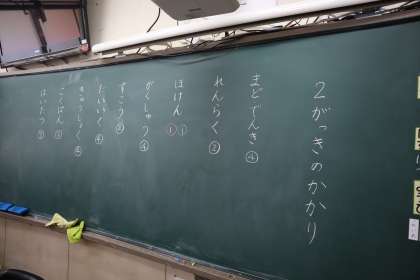 2がっきのかかり
まどでんき④
れんらく②
ほけん①①
がくしゅう④
ずこう②
たいいく④
きゅうしょく④
こくばん②
はいたつ②